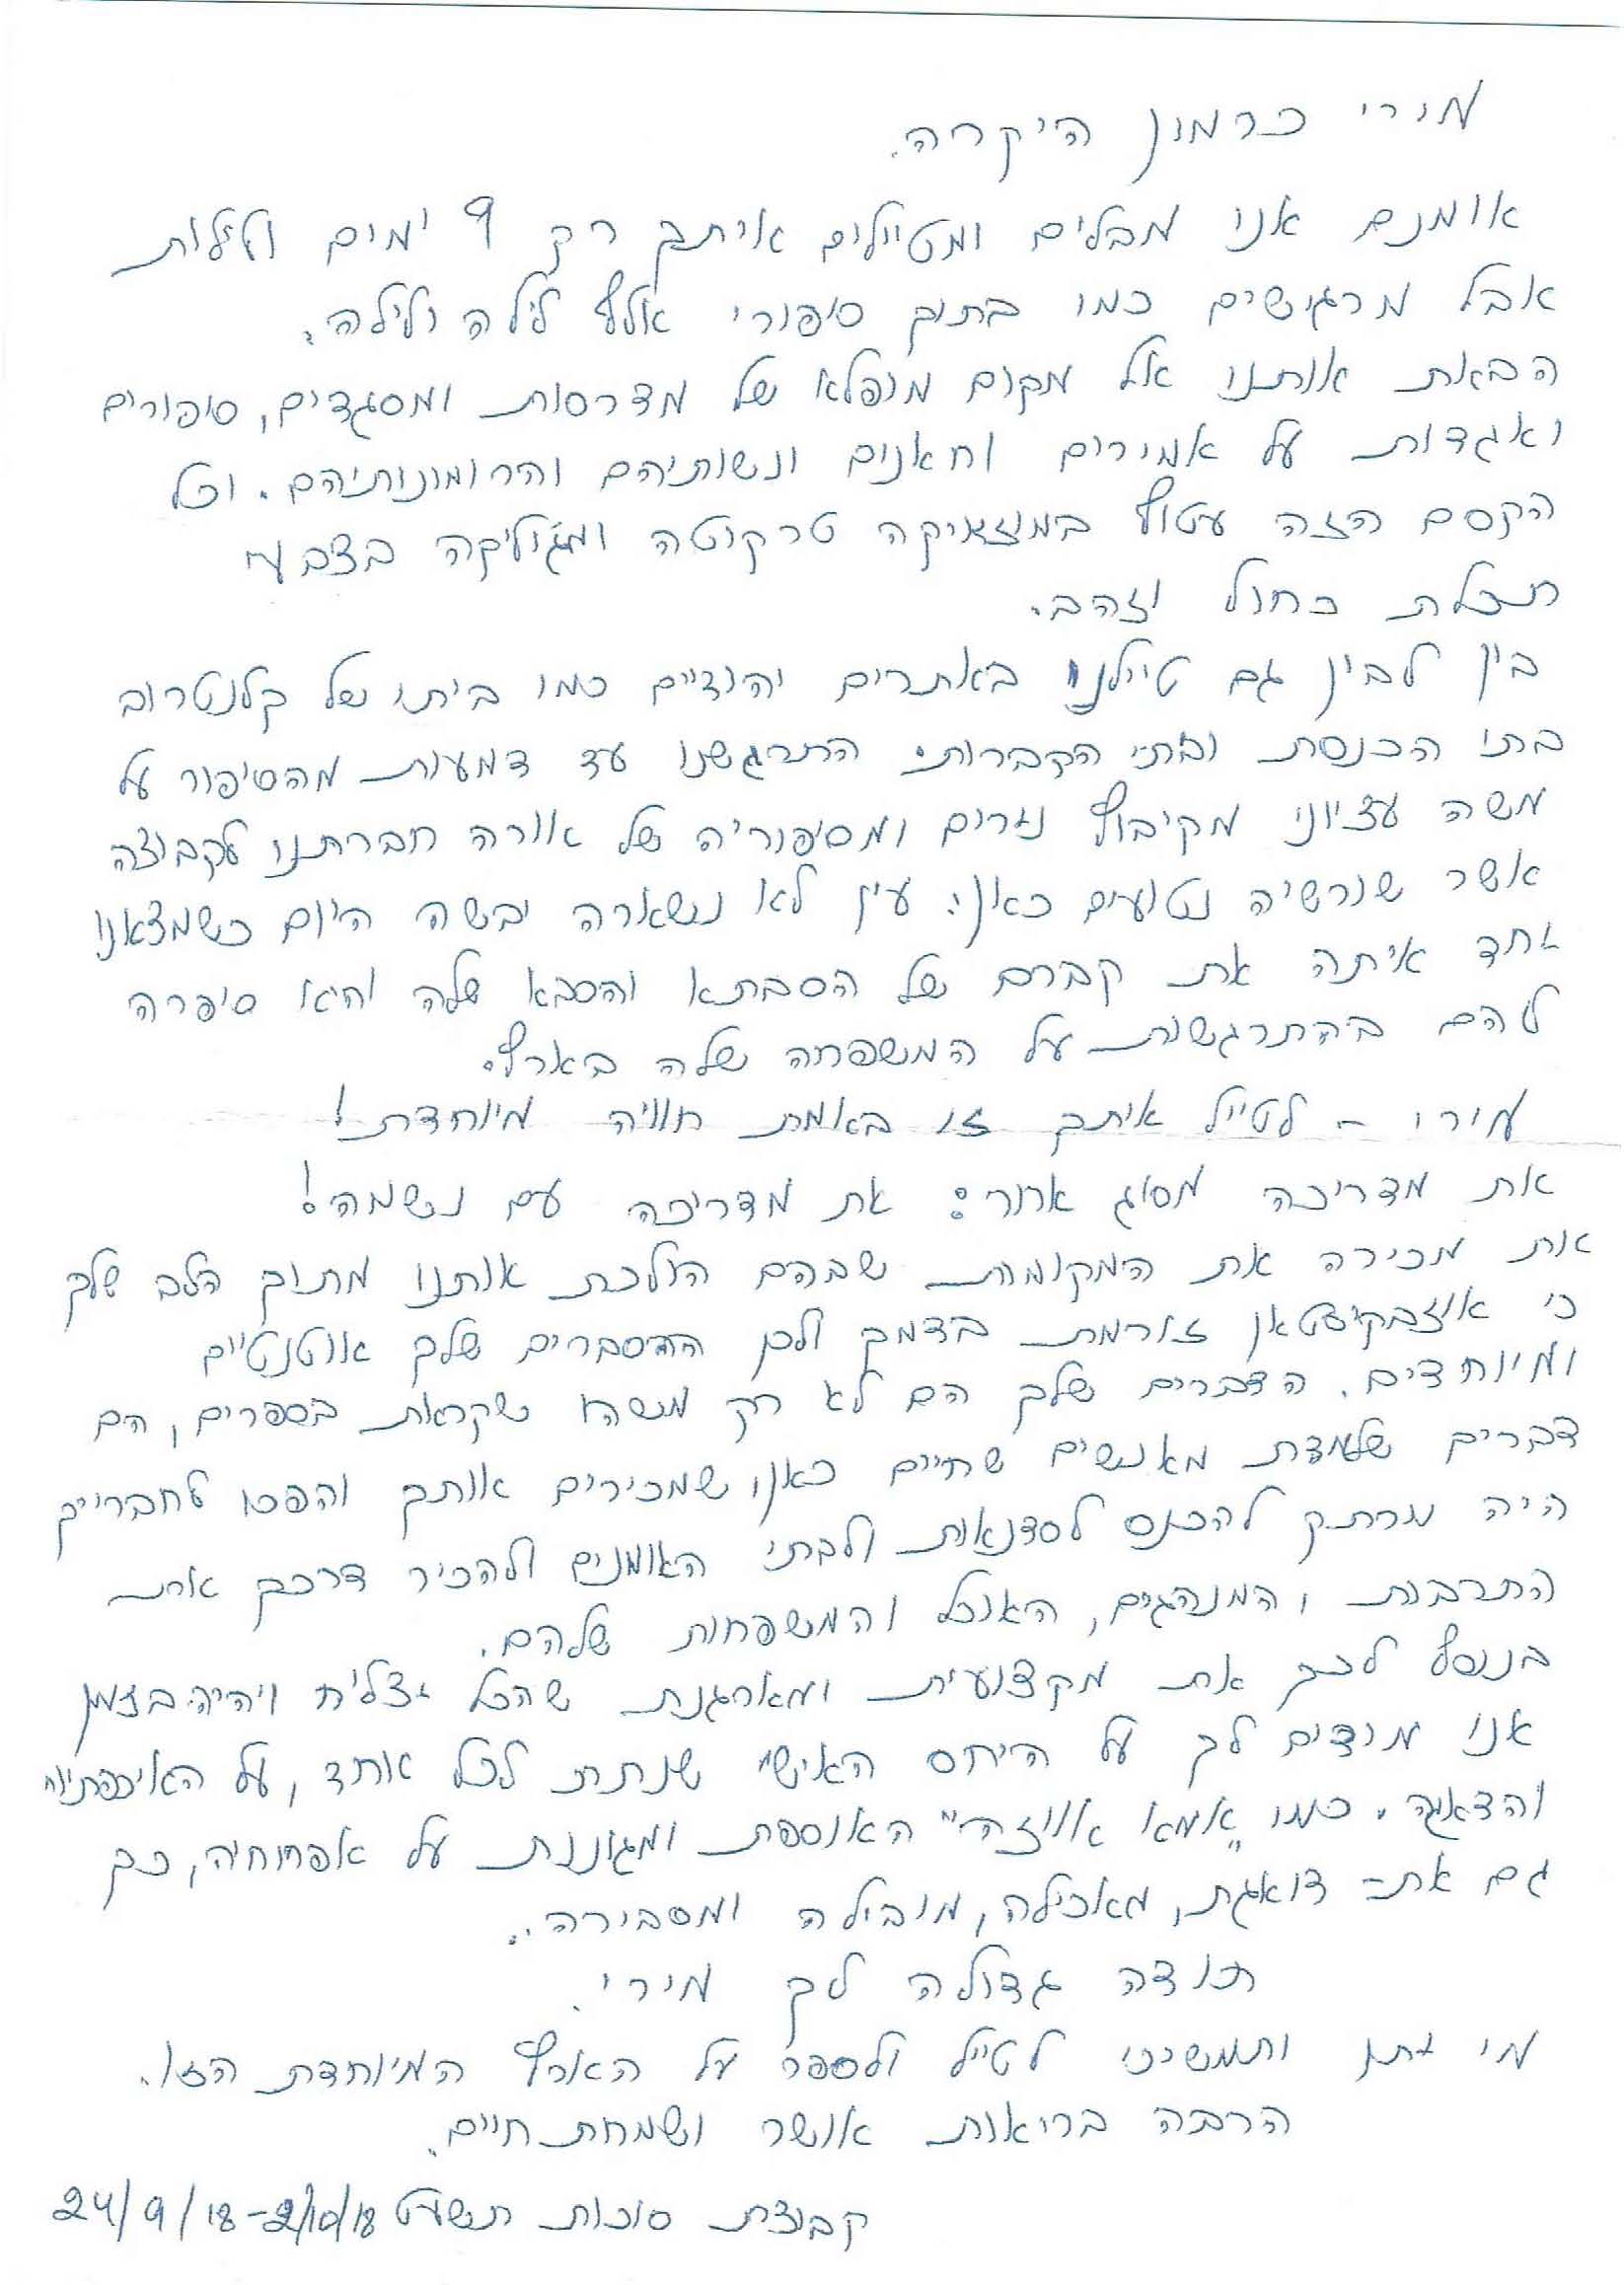 מירי כרמון היקרה.
אומנם אנו מבלים ומטיילים איתך רק 9 ימים ולילות
אבל מרגישים כמו בתוך סיפורי אלף לילה ולילה.
הבאת אותנו אל מקום מופלא של מדרסות ומסגדים, סיפורים
ואגדות על אמירים וחאנים ונשותיהם והרומנותיהם. וכל
הקסם הזה עטוף במוזאיקה טרקוטה ומג'וליקה בצבעי
תכלת כחול וזהב.
בין לבין גם טיילנו באתרים יהודיים כמו ביתו של קלנטרוב
בתי הכנסת ובתי הקברות. התרגשנו עד דמעות מהסיפור על
משה עציוני מקיבוץ נגרים ומסיפוריה של אורה חברתנו לקבוצה
אשר שורשיה נטועים כאן. עין לא נשארה יבשה היום כשמצאנו
יחד איתה את קברם של הסבתא והסבא שלה והיא סיפרה
להם בהתרגשות על המשפחה שלה בארץ.
מירי - לטייל איתך זו באמת חוויה מיוחדת!
את מדריכה מסוג אחר: את מדריכה עם נשמה!
את מכירה את המקומות שבהם הולכת אותנו מתוך הלב שלך
כי אוזבקיסטאן זורמת בדמך ולכן ההסברים שלך אותנטיים
ומיוחדים. הדברים שלך הם לא רק משהו שקראת בספרים, הם
דברים שלמדת מאנשים שחיים כאן, שמכירים אותך והפכו לחברייך
היה מרתק להכנס לסדנאות ולבתי האומנים ולהכיר דרכך את
התרבות, המנהגים, האוכל והמשפחות שלהם.
בנוסף לכך את מקצועית ומארגנת שהכל יצליח ויהיה בזמן
אנו מודים לך על היחס האישי שנתת לכל אחד, על האיכפתיות
והדאגה. כמו "אמא אווזה" האוספת ומגוננת על אפרוחיה, כך
גם את - דואגת, מאכילה, מובילה ומסבירה..
תודה גדולה לך מירי.
מי יתן ותמשיכי לטייל ולספר על הארץ המיוחדת הזו.
הרבה בריאות אושר ושמחת חיים.
קבוצת סוכות תשע"ט 24/9/18-2/10/18